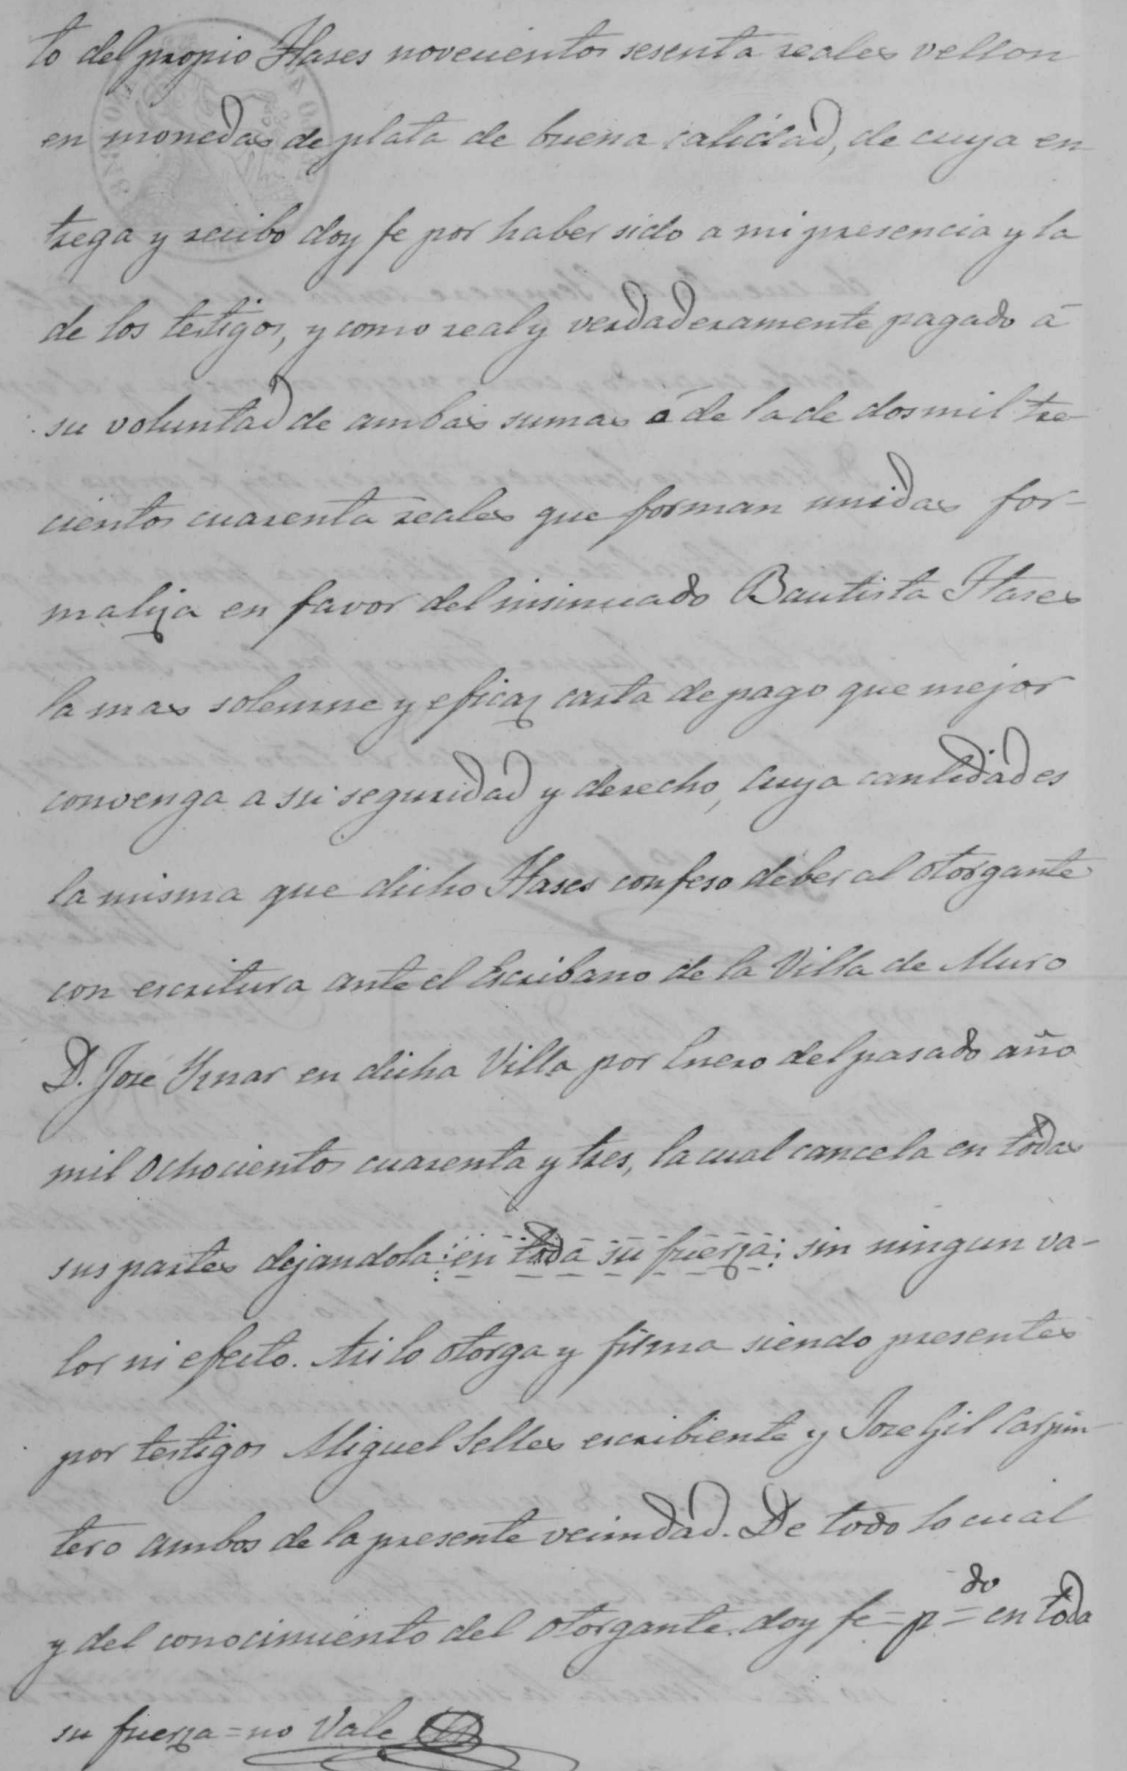 to del propio Hases novecientos sesenta reales vellon
en monedas de plata de buena calidad, de cuya en
trega y recibo doy fe por haber sido a mi presencia y la
de los testigos, y como real y verdaderamente pagado á
su voluntad de ambas sumas ó de la de dos mil tre-
cientos cuarenta reales que forman unidas for-
maliza en favor del insinuado Bautista Hases
la mas solemne y eficaz carta de pago que mejor
convenga a su seguridad y derecho, cuya cantidad es
la misma que dicho Hases confeso deber al otorgante
con escritura ante el Escribano de la Villa de Muro
D. José Ynar en dicha Villa por Enero del pasado año
mil ochocientos cuarenta y tres, la cual cancela en todas
sus partes dejandola: en toda su fuerza: sin ningun va-
lor ni efecto. Asi lo otorga y firma siendo presentes
por testigos Miguel Selles escribiente y Jose Gil Carpin-
tero ambos de la presente vecindad. De todo lo cual
y del conocimiento del otorgante doy fe = p.do = en toda
su fuerza = no Vale